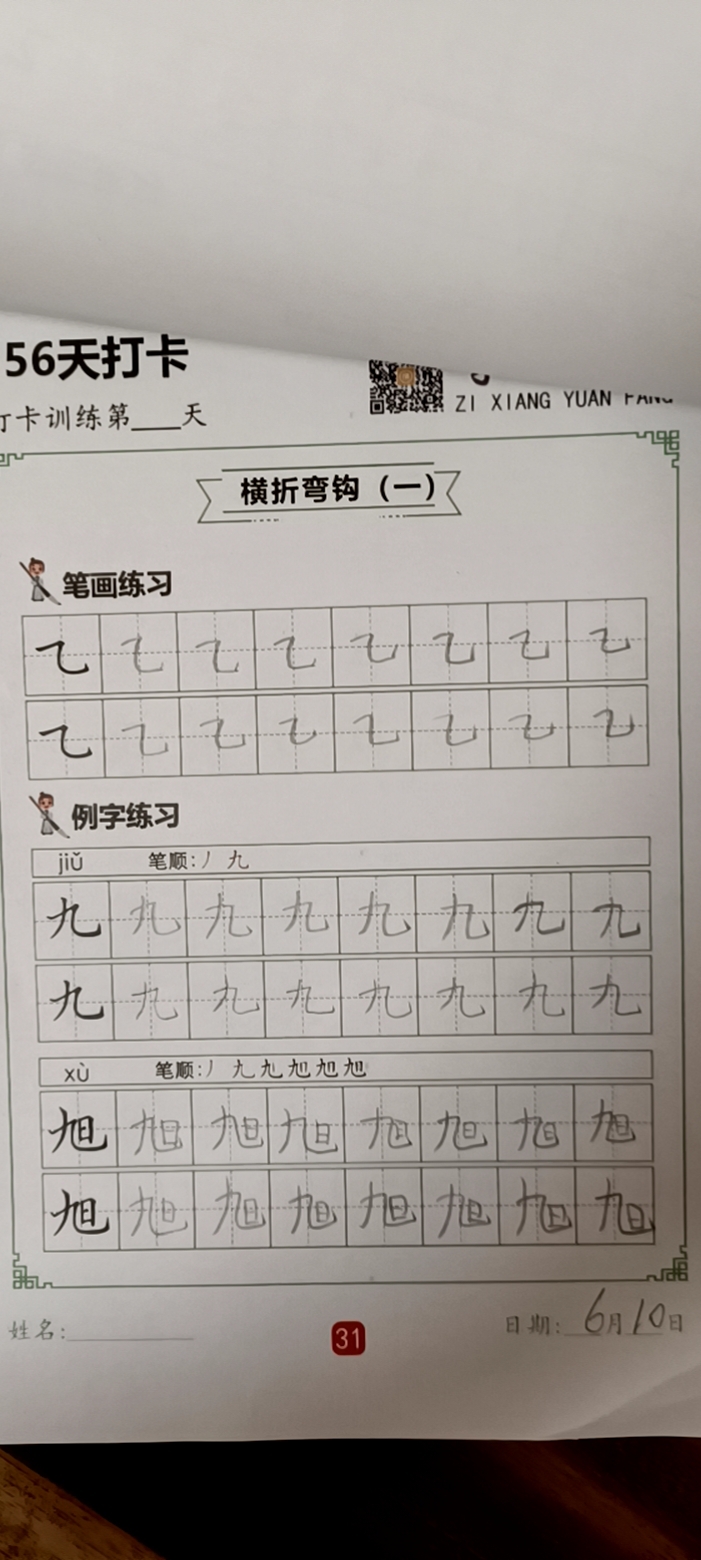 56天打卡
打卡训练第____天
ZI XIANG YUAN FANG
横折弯钩（一）
笔画练习
㇈ ㇈ ㇈ ㇈ ㇈ ㇈ ㇈ ㇈
㇈ ㇈ ㇈ ㇈ ㇈ ㇈ ㇈ ㇈
例字练习
jiǔ 笔顺:丿 九
九 九 九 九 九 九 九 九
九 九 九 九 九 九 九 九
xù 笔顺:丿 九
旭 旭 旭 旭 旭 旭 旭 旭
旭 旭 旭 旭 旭 旭 旭 旭
姓名:
31
日期: 6月10日